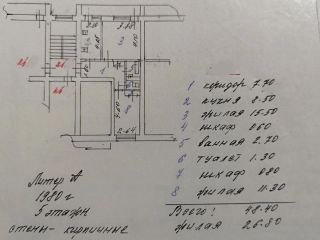 1 коридор 7.70
2 кухня 8.50
3 жилая 15.50
4 шкаф 0.60
5 ванная 2.70
6 туалет 1.30
7 шкаф 0.80
8 жилая 11.30
Всего: 48.40
жилая 26.80
Литер А
1980 г
5 этажн
стены - кирпичные
2.64